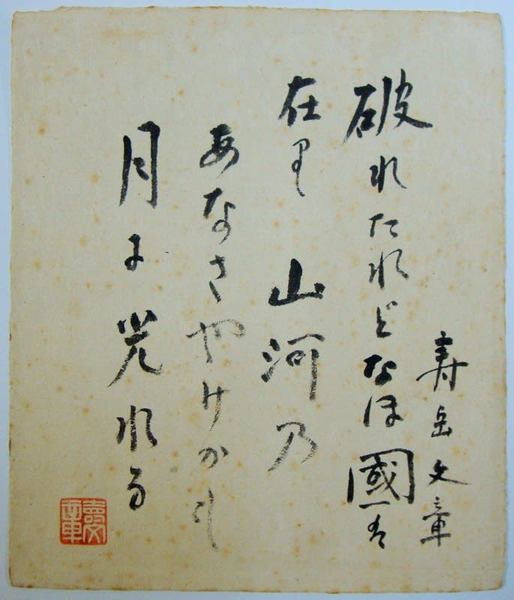 寿岳文章
破れたれどなほ國は
在り 山河乃
あなさやけかも
月に光れる